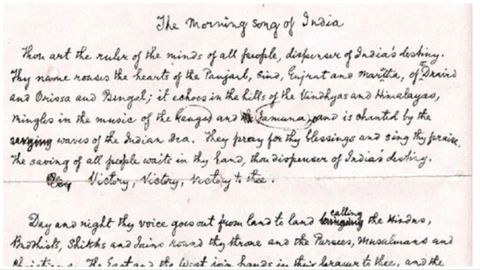 The Morning Song of India
Thou art the ruler of the minds of all people, dispenser of India's destiny.
Thy name rouses the hearts of the Panjaub, Sind, Gujrat and Maratta, of Dravid
and Orissa and Bengal; it echoes in the hills of the Vindhyas and Himalayas,
mingles in the music of the Ganges and Jamuna, and is chanted by the
waves of the Indian Sea. They pray for thy blessings and sing thy praise.
The saving of all people waits in thy hand, thou dispenser of India's destiny.
Victory, Victory, Victory to thee.
Day and night thy voice goes out from land to land calling the Hindus,
Buddhists, Sikhs and Jains round thy throne and the Parsees, Musulmans and
Christians. The East and the West join hands in their prayer to thee, and the